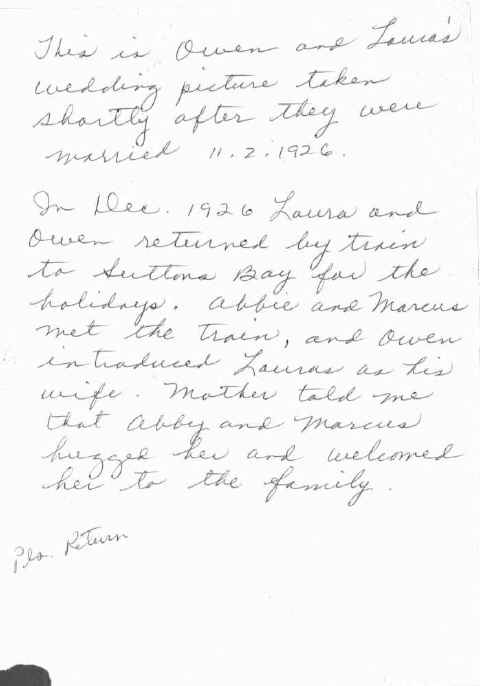 This is Owen and Laura's
wedding picture taken
shortly after they were
married 11.2.1926.
In Dec. 1926 Laura and
Owen returned by train
to Suttons Bay for the
holidays. Abbie and Marcus
met the train, and Owen
introduced Lauras as his
wife. Mother told me
that Abby and Marcus
hugged her and welcomed
her to the family.
Pls. Return